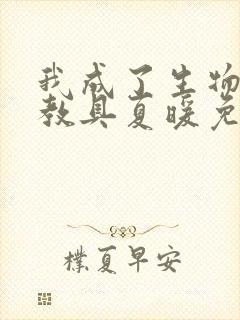 我成了生物
教具夏暖免
樸夏早安